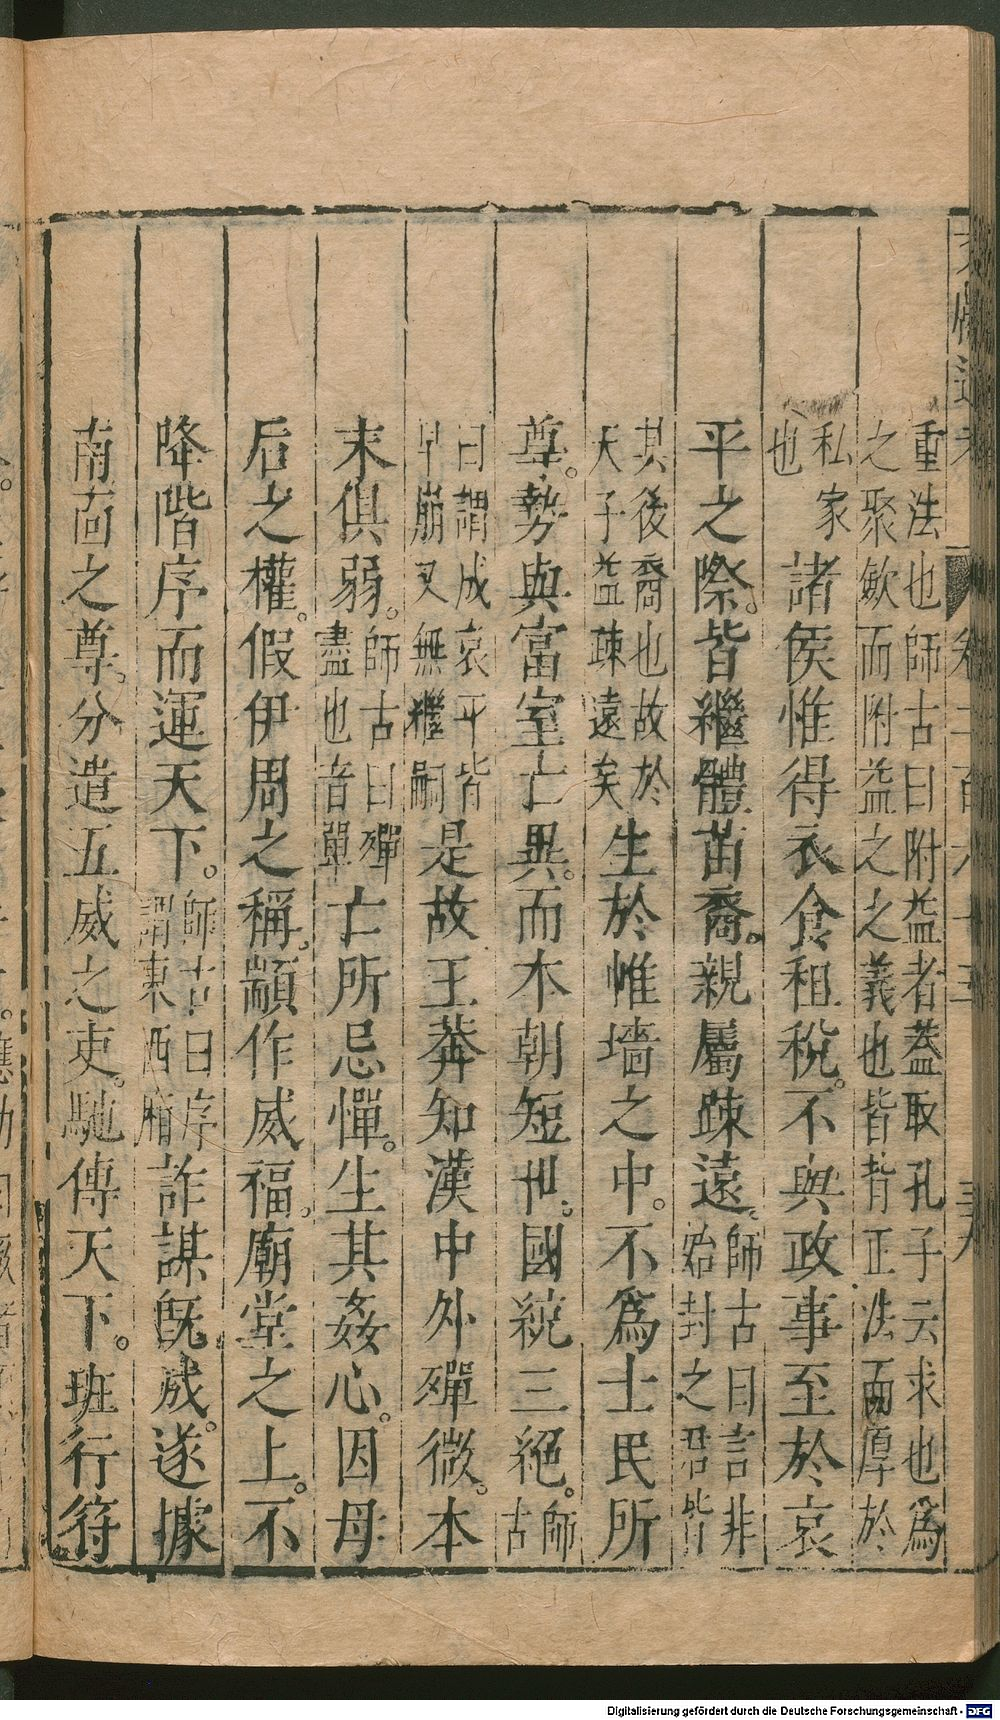 重法也師古曰附益者蓋取孔子云求也爲
之聚歛而附益之之義也皆背正法而厚於
私家
也
諸侯惟得衣食租稅。不與政事至於哀
平之際。皆繼體苗裔。親屬踈遠。
師古曰言非
始封之君皆
其後裔也故於
天子益踈遠矣
生於惟墻之中。不爲士民所
尊。勢與富室亡異。而本朝短世。國統三絕。
師
古
曰謂成哀平皆
早崩又無繼嗣
是故王莽知漢中外殫微。本
末俱弱。
師古曰殫
盡也音單
亡所忌憚。生其姦心。因母
后之權。假伊周之稱。顓作威福。廟堂之上。不
降階序而運天下。
師古曰序
謂東西廂
詐謀旣成。遂據
南面之尊。分遣五威之吏。馳傳天下。班行符
Digitalisierung gefördert durch die Deutsche Forschungsgemeinschaft - DFG